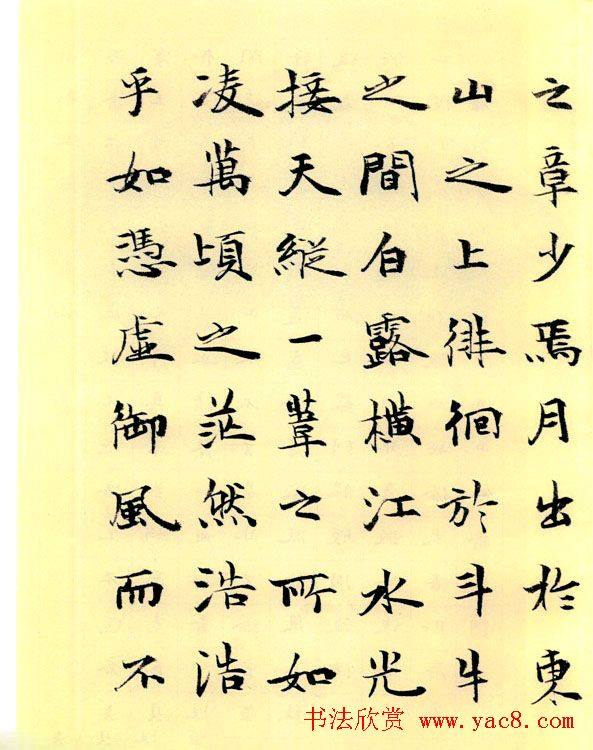 之章少焉月出於東
山之上徘徊於斗牛
之間白露橫江水光
接天縱一葦之所如
凌萬頃之茫然浩浩
乎如憑虛御風而不
书法欣赏 www.yac8.com